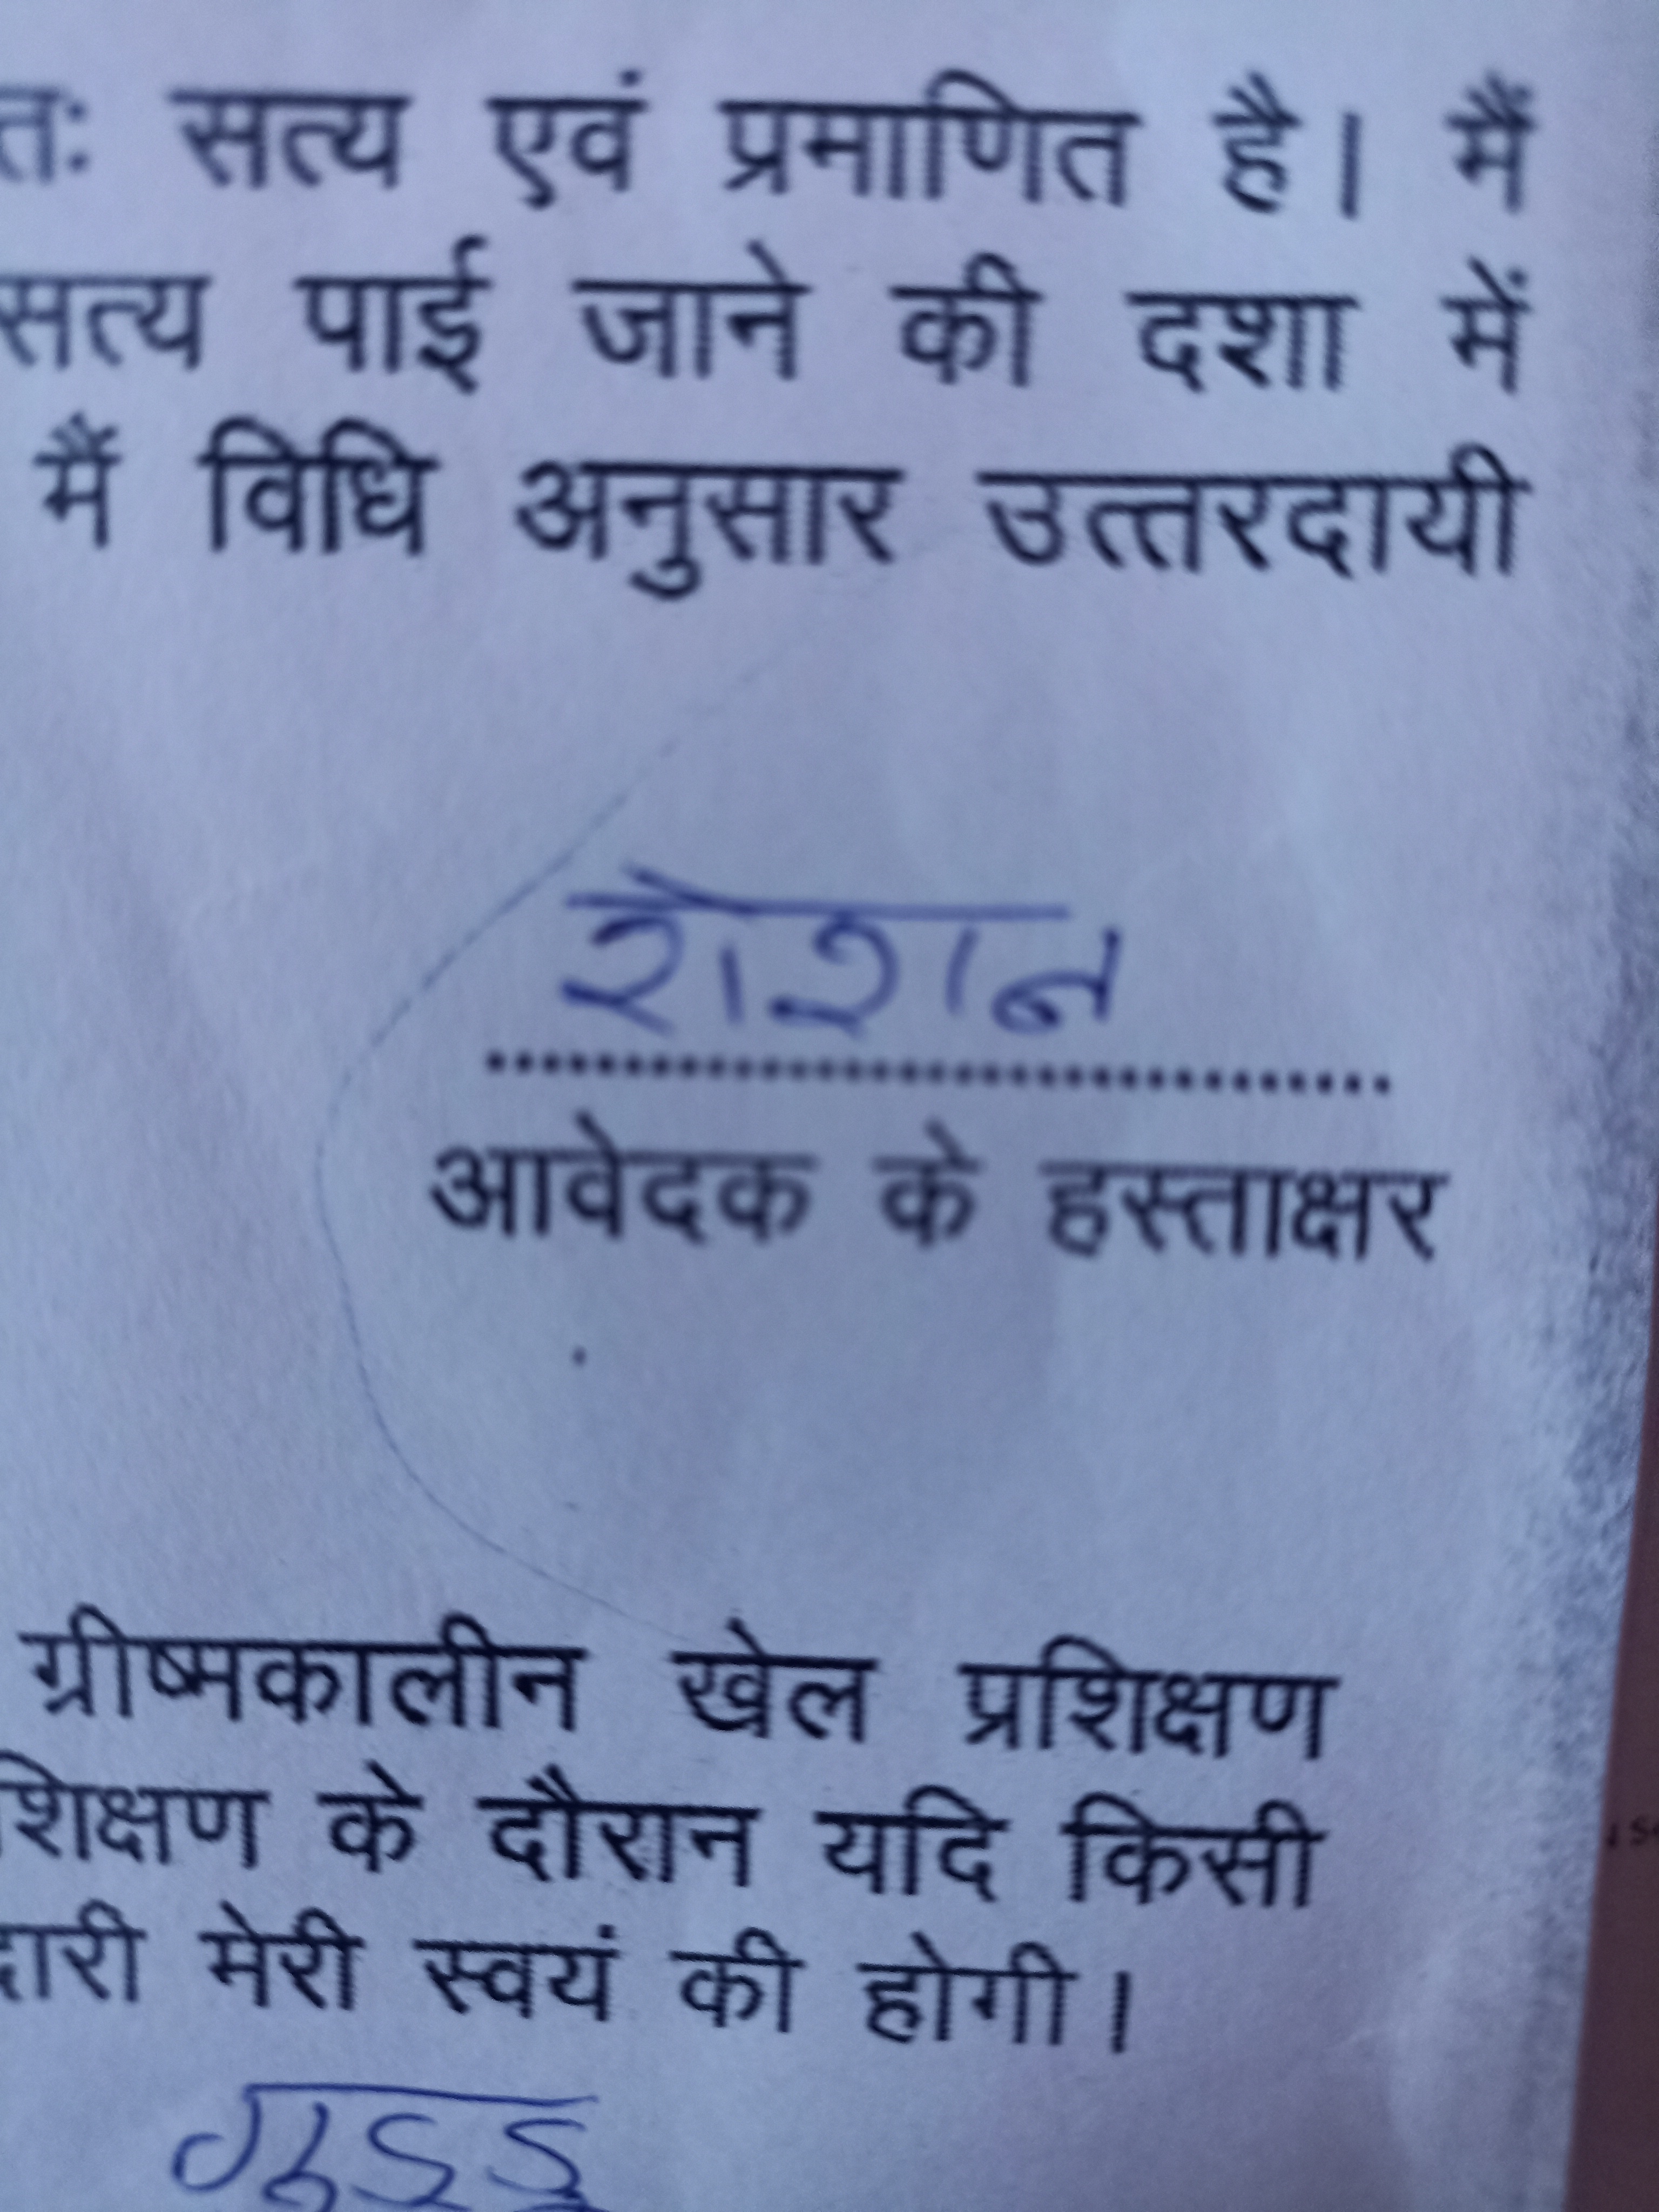 तः सत्य एवं प्रमाणित है। मैं
सत्य पाई जाने की दशा में
मैं विधि अनुसार उत्तरदायी
रोशन
आवेदक के हस्ताक्षर
ग्रीष्मकालीन खेल प्रशिक्षण
शिक्षण के दौरान यदि किसी
दारी मेरी स्वयं की होगी।
गुड्डू